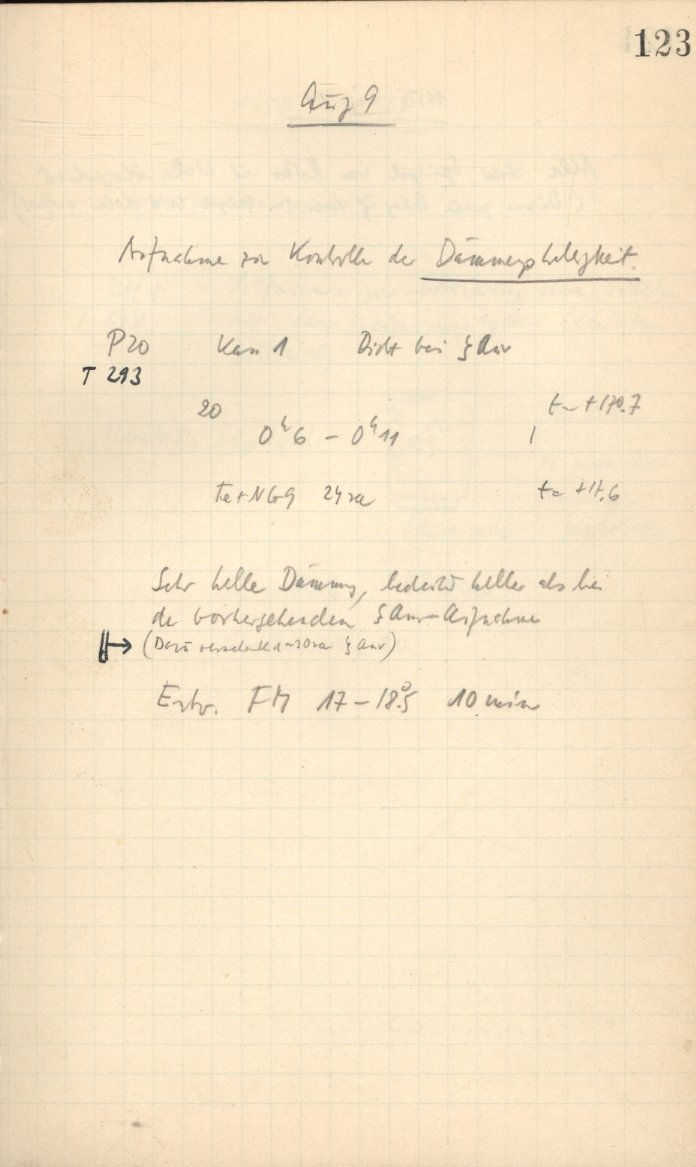 123
Aug 9
Aufnahme zur Kontrolle der Dämmerhelligkeit.
P20 Kass 1 Dicht bei ζ Aur
T 293
20
0h6 – 0h11 1 t = +17°.7
24 t = +17,6
Sehr helle Dämmg, bedeutd heller als bei
der vorhergehenden ζ Aur-Aufnahme
(ζ Aur)
Entw. FM 17 – 18°.5 10 min